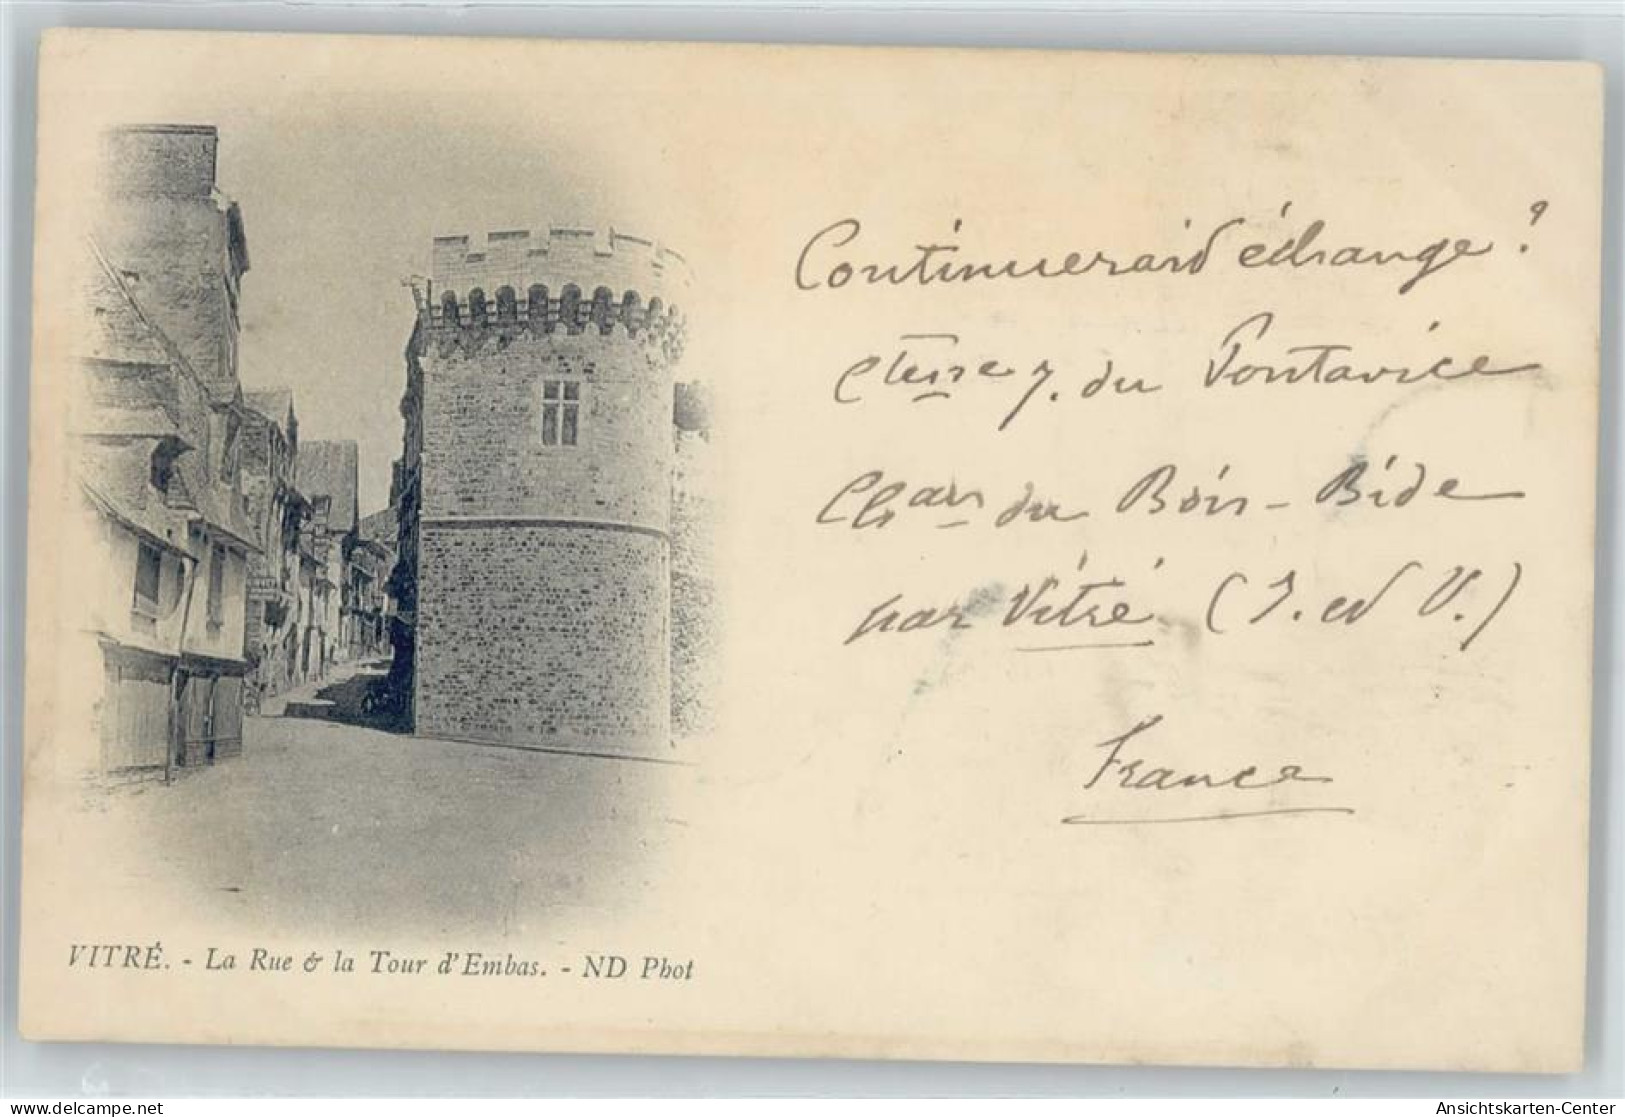 Continuerais échange ?
Ctesse Y. du Pontavice
Chau du Bois-Bide
par Vitré (I. et V.)
France
VITRÉ. - La Rue & la Tour d'Embas. - ND Phot
delcampe.net
Ansichtskarten-Center